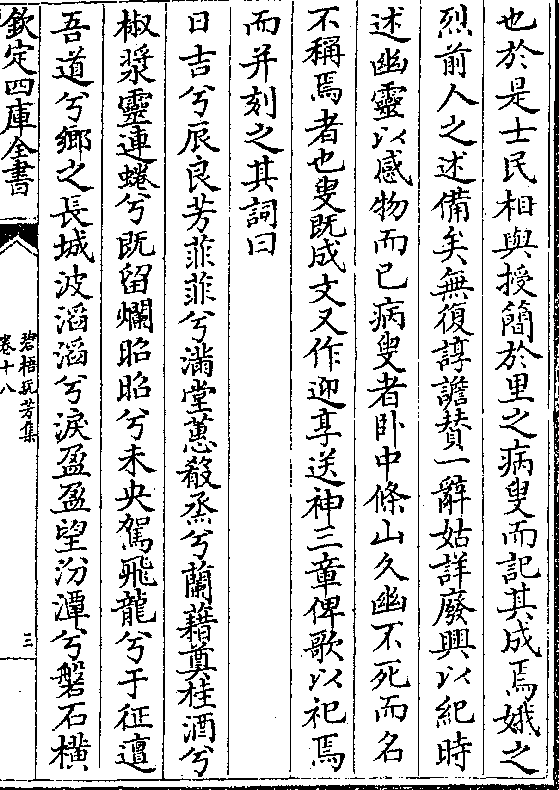 也於是士民相與授簡於里之病叟而記其成焉娥之
烈前人之述備矣無復諄譫贊一辭姑詳廢興以紀時
述幽靈以感物而已病叟者卧中條山久幽不死而名
不稱焉者也叟既成文又作迎享送神三章俾歌以祀焉
而并刻之其詞曰
日吉兮辰良芳菲菲兮滿堂蕙殽烝兮蘭藉奠桂酒兮
椒漿靈連蜷兮既留爛昭昭兮未央駕飛龍兮于征邅
吾道兮鄉之長城波滔滔兮淚盈盈望汾潭兮磐石橫
欽定四庫全書
碧梧玩芳集
卷十八
三